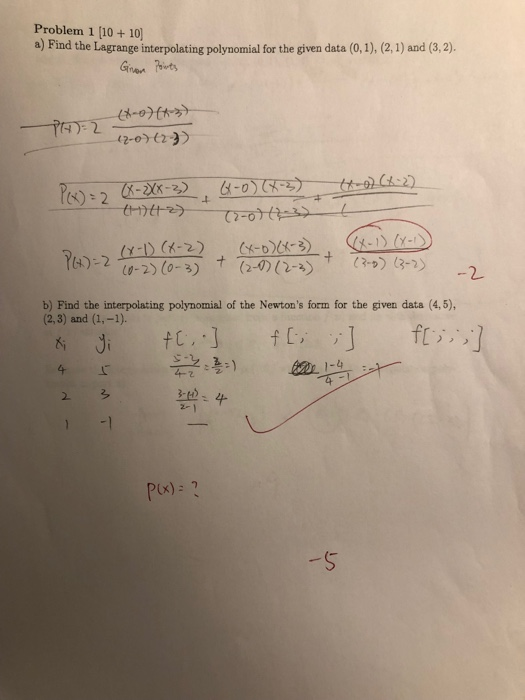 Problem 1 [10 + 10]
a) Find the Lagrange interpolating polynomial for the given data (0, 1), (2, 1) and (3, 2).
Given Points
P(x)= 2 (x-0)(x-3) / (2-0)(2-3)
P(x) = 2 (x-2)(x-3) / (1-1)(1-2) + (x-0)(x-3) / (2-0)(2-3) + (x-0)(x-2) / (
P(x)=2 (x-1)(x-2) / (0-2)(0-3) + (x-0)(x-3) / (2-0)(2-3) + (x-1)(x-1) / (3-0)(3-2)
-2
b) Find the interpolating polynomial of the Newton's form for the given data (4, 5),
(2, 3) and (1, −1).
xi yi f[ , · ] f[ ; ; ] f[ ; ; ; ]
4 5 5-3/4-2 = 2/2 = 1 1-4/4-1 = -1
2 3 3-(-1)/2-1 = 4
1 -1 —
P(x) = ?
-5